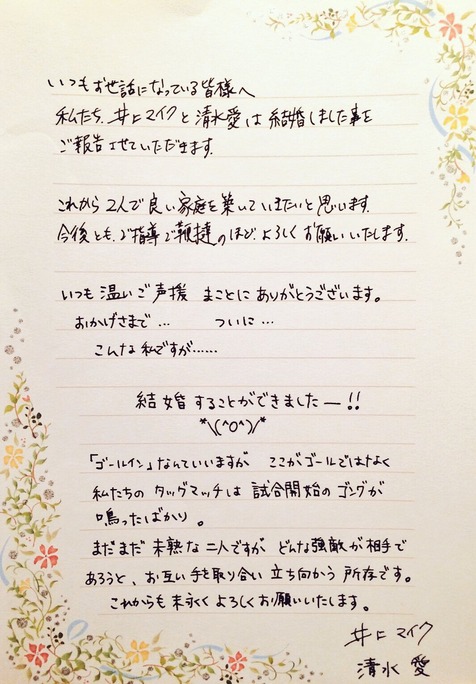 いつもお世話になっている皆様へ
私たち、井上マイクと清水愛は結婚しました事を
ご報告させていただきます。
これから2人で良い家庭を築いていきたいと思います。
今後とも、ご指導ご鞭撻のほど、よろしくお願いいたします。
いつも温かいご声援 まことにありがとうございます。
おかげさまで… ついに…
こんな私ですが……
結婚することができましたー!!
*\(^o^)/*
「ゴールイン」なんていいますが ここがゴールではなく
私たちのタッグマッチは試合開始のゴングが
鳴ったばかり。
まだまだ未熟な二人ですが どんな強敵が相手で
あろうと、お互い手を取り合い立ち向かう所存です。
これからも末永くよろしくお願いいたします。
井上マイク
清水愛